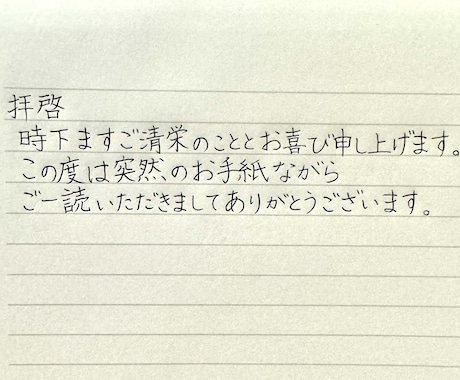 拝啓
時下ますご清栄のこととお喜び申し上げます。
この度は突然のお手紙ながら
ご一読いただきましてありがとうございます。